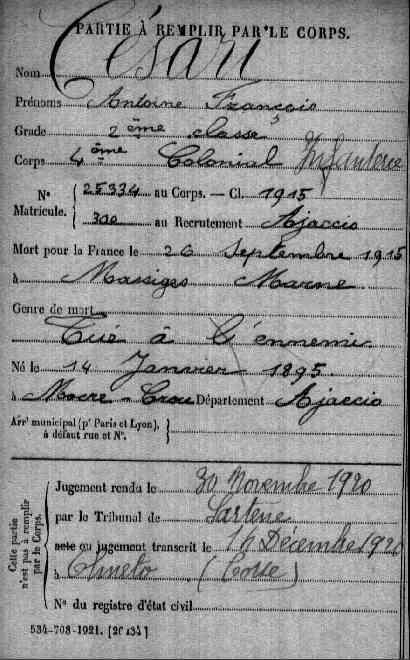 PARTIE À REMPLIR PAR LE CORPS.
Nom César
Prénoms Antoine François
Grade 2ème classe
Corps 4ème Colonial Infanterie
N° Matricule. { 25334 au Corps. — Cl. 1915
300 au Recrutement Ajaccio
Mort pour la France le 26 Septembre 1915
à Massiges Marne
Genre de mort
Tué à l'ennemi
Né le 14 Janvier 1895
à Département Ajaccio
Arrt municipal (pr Paris et Lyon), à défaut rue et N°.
Cette partie n'est pas à remplir par le Corps.
Jugement rendu le 30 Novembre 1920
par le Tribunal de Sartène
acte ou jugement transcrit le 16 Décembre 1920
à Olmeto (Corse)
N° du registre d'état civil
534-708-1921. [26434]